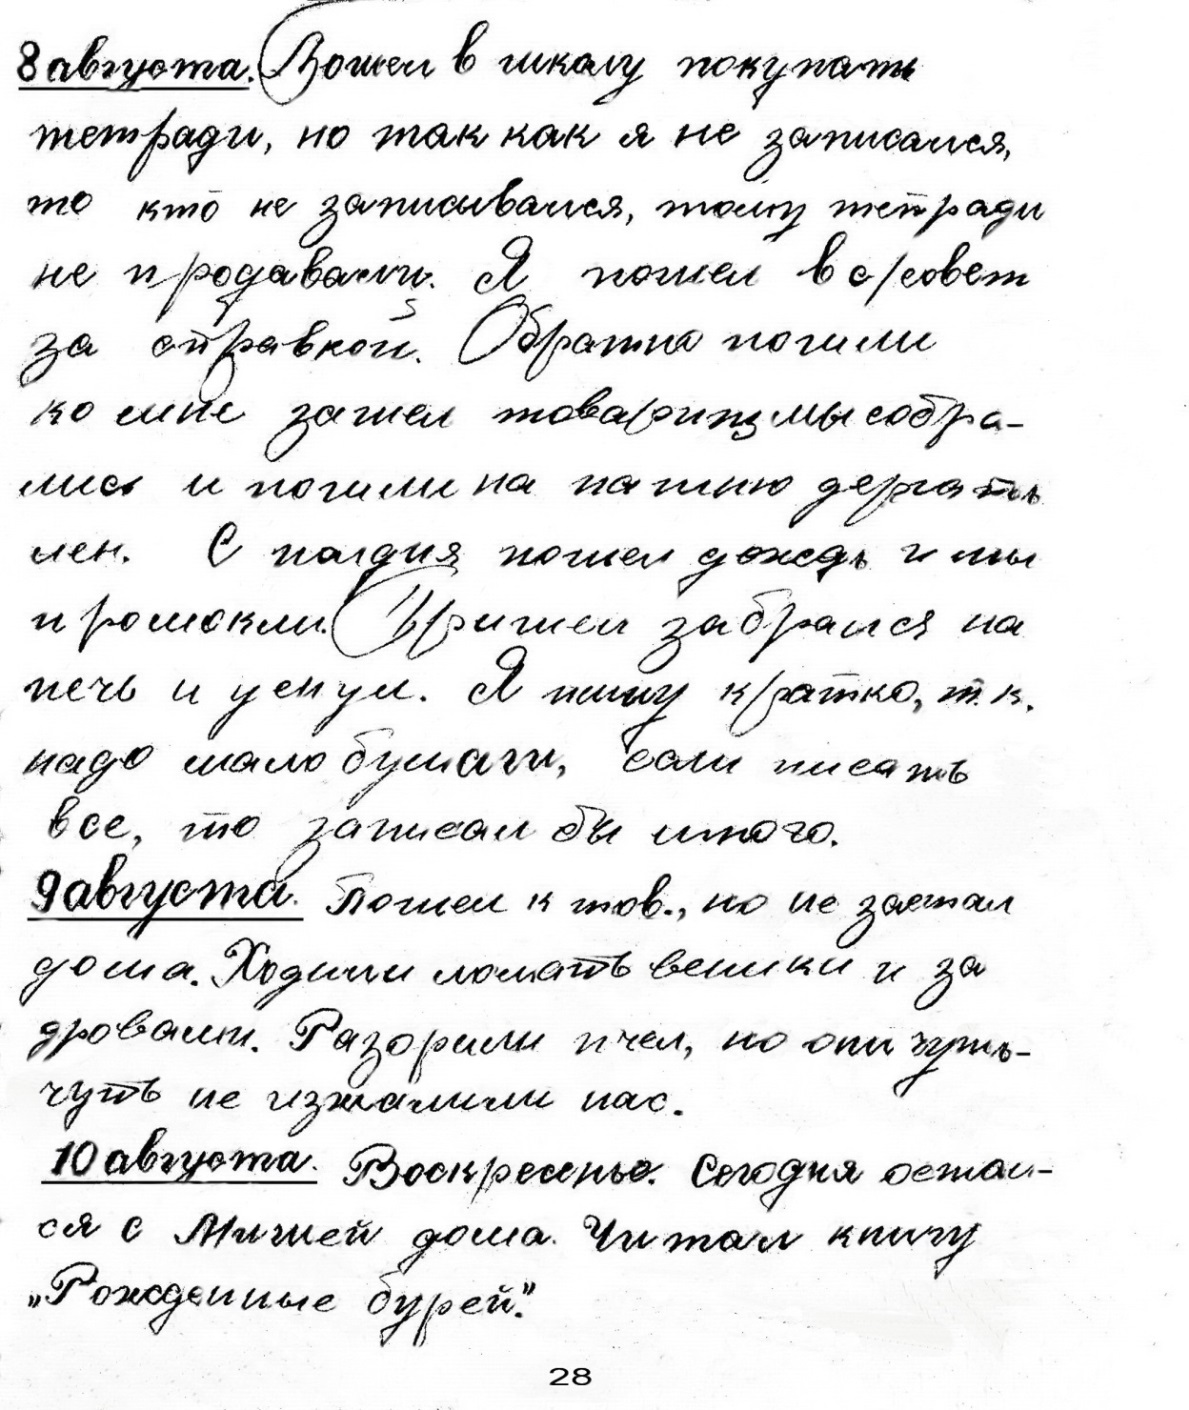 8 августа. Вошел в школу покупать
тетради, но так как я не записался,
то кто не записывался, тому тетради
не продавали. Я пошел в с/совет
за справкой. Обратно пошли
ко мне зашел товарищ, мы собра-
лись и пошли на пашню дергать
лен. С полдня пошел дождь и мы
промокли. Пришел забрался на
печь и уснул. Я пишу кратко, т.к.
надо мало бумаги, если писать
все, то записал бы много.
9 августа. Пошел к тов., но не застал
дома. Ходили ломать веники и за
дровами. Разорили пчел, но они чуть-
чуть не изжалили нас.
10 августа. Воскресенье. Сегодня остал-
ся с Мишей дома. Читал книгу
„Рожденные бурей".
28